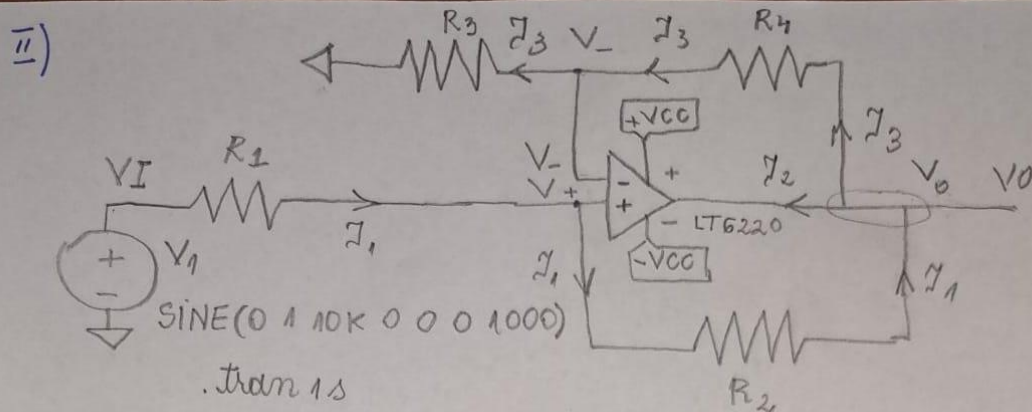 II)
R3
J3
V-
J3
R4
+VCC
J3
VI
R1
V-
V+
+
-
+
J2
V0
VO
J1
-
LT6220
-VCC
+
-
V1
J1
J1
SINE(0 1 10K 0 0 0 1000)
.tran 1s
R2